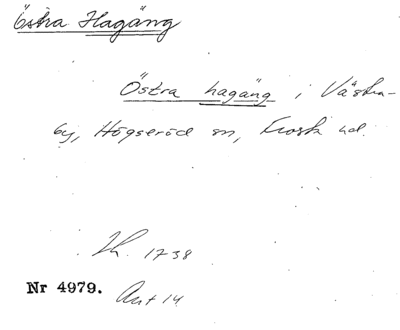 Östra Hagäng
Östra hagäng i Västra-
by, Högseröd sn, Frosta hd.
Lh. 1738
Nr 4979.
Ant 14